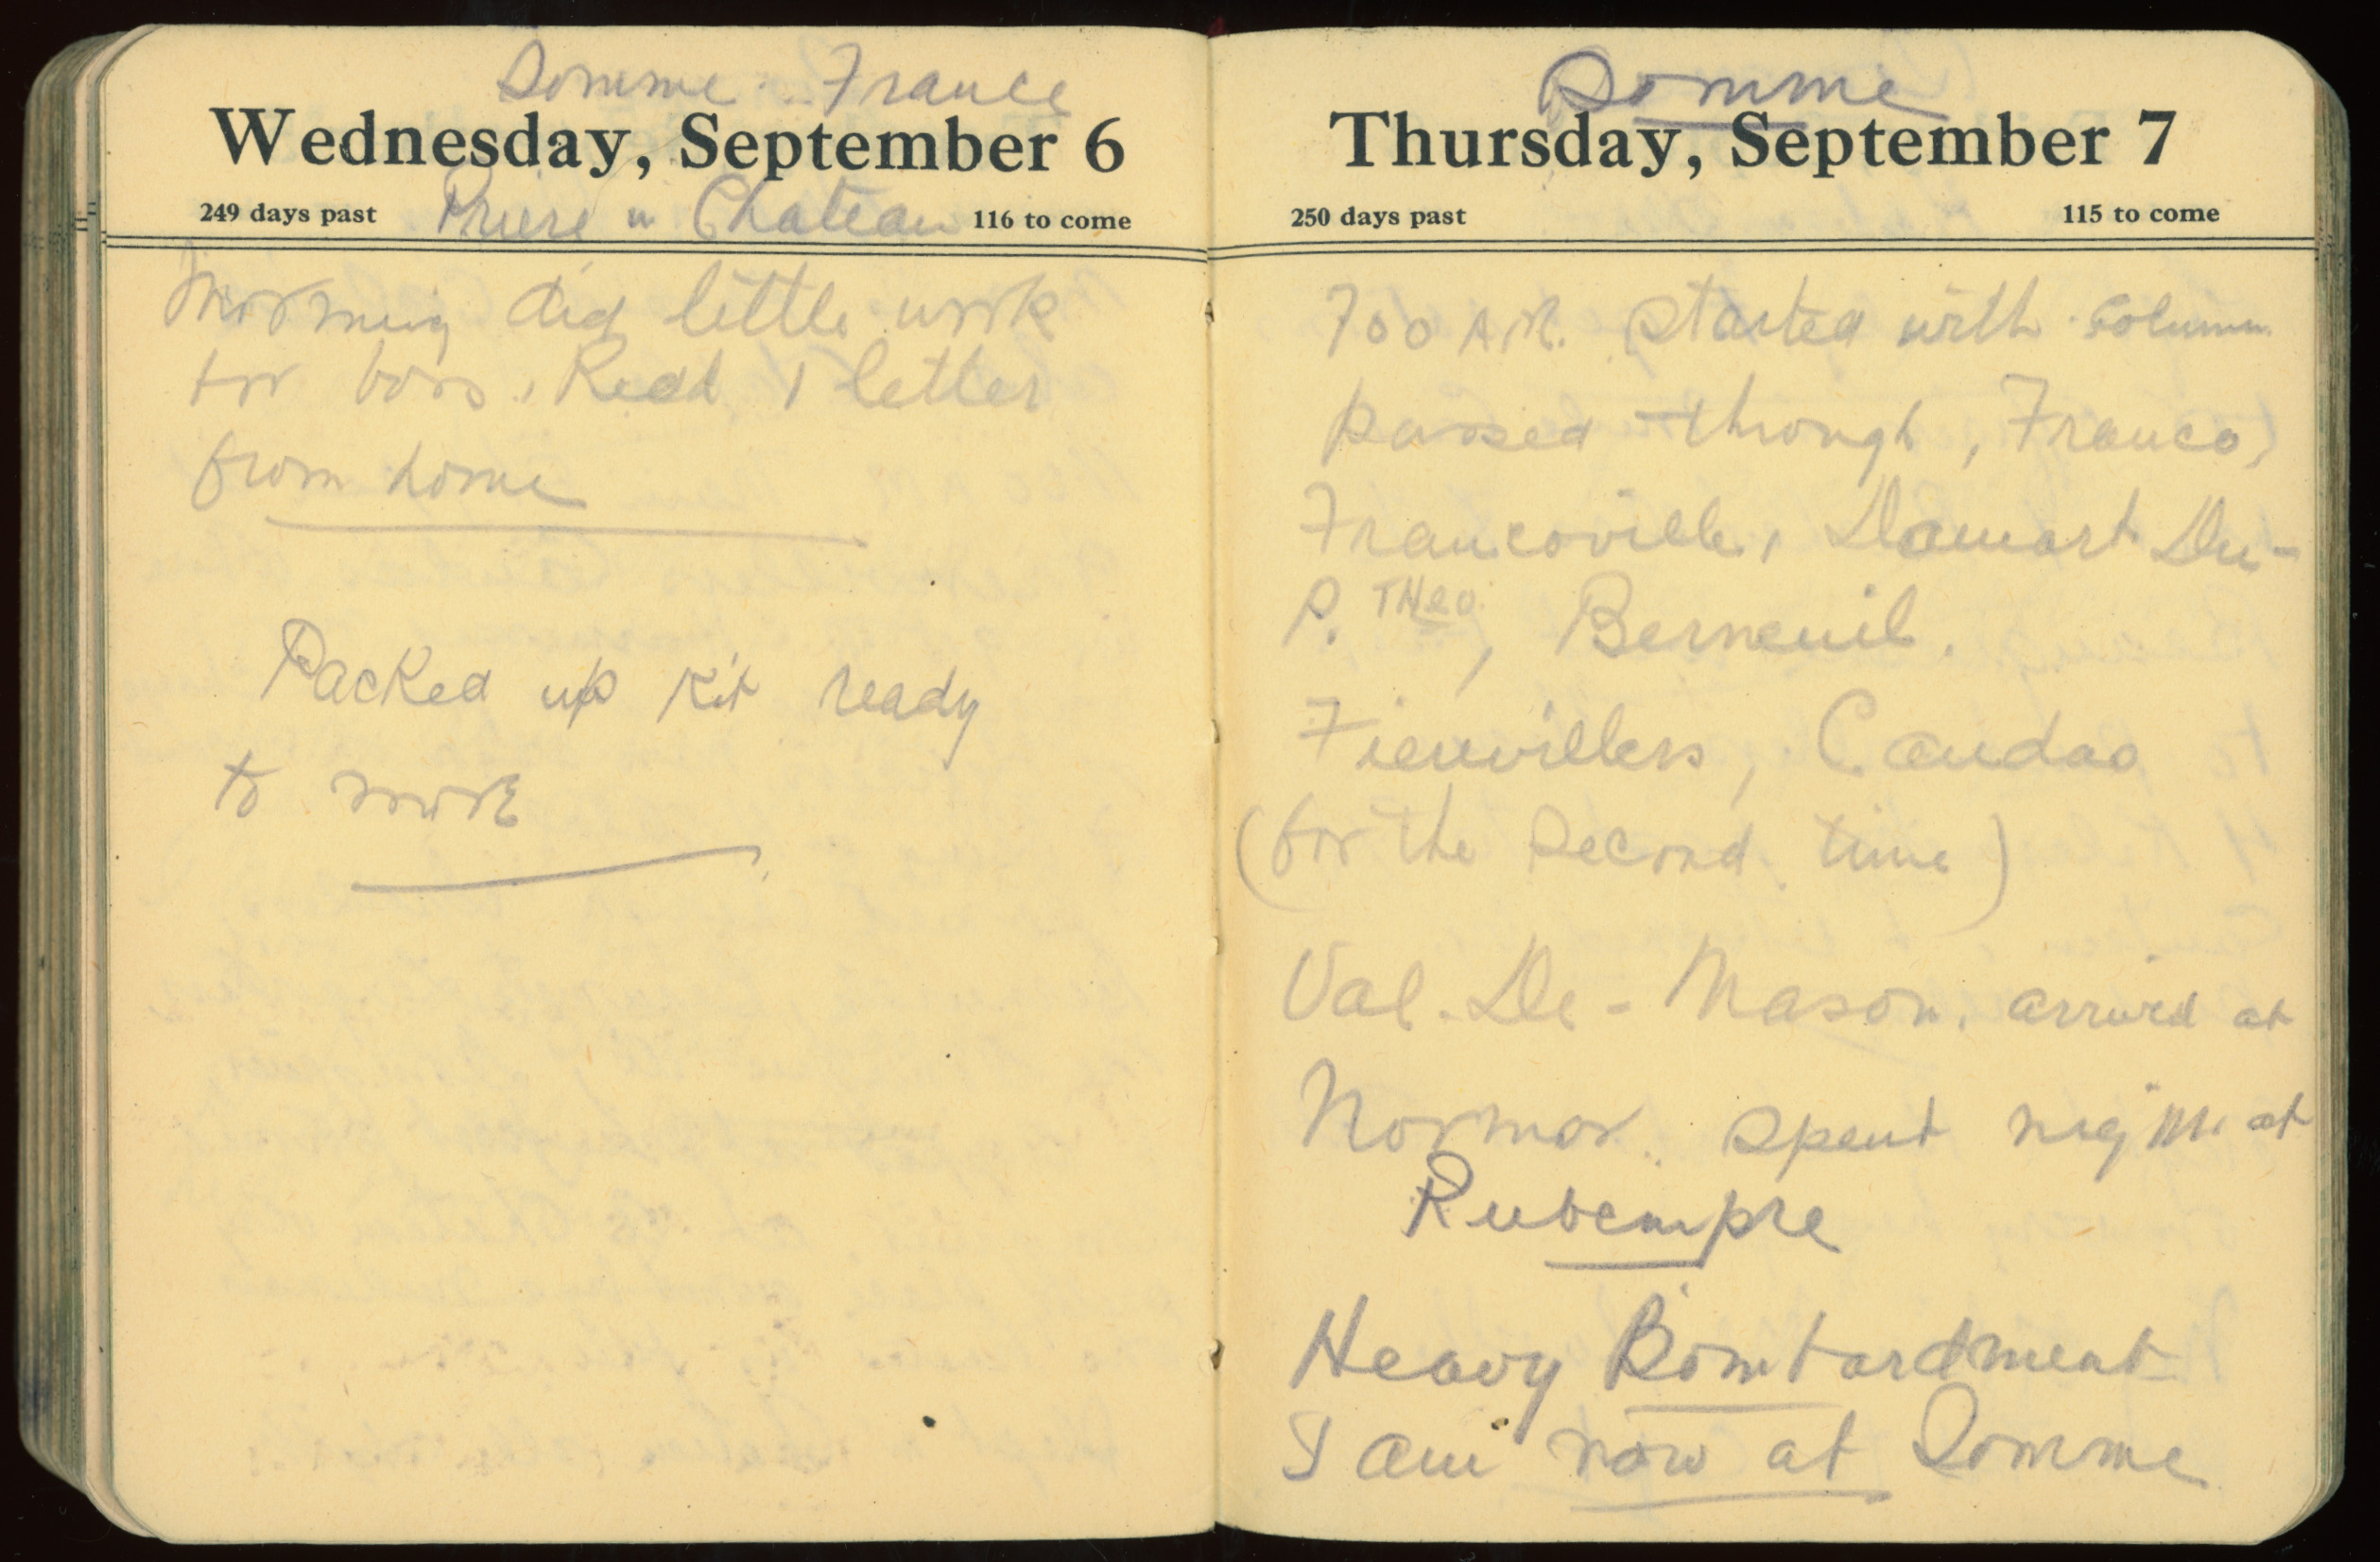 Somme France
Wednesday, September 6
249 days past Priere " Chateau 116 to come
Morning did little work
for boss, Recd 1 letter
from home
Packed up kit ready
to move
Somme
Thursday, September 7
250 days past 115 to come
700 A.M. started with column
passed through, Franco,
Francoville, Damart Du-
P. THeo, Berneuil.
Fienvillers, Candao
(for the second time)
Val-De-Mason. arrived at
Normor. spent night at
Rubempre
Heavy Bombardment
I am now at Somme